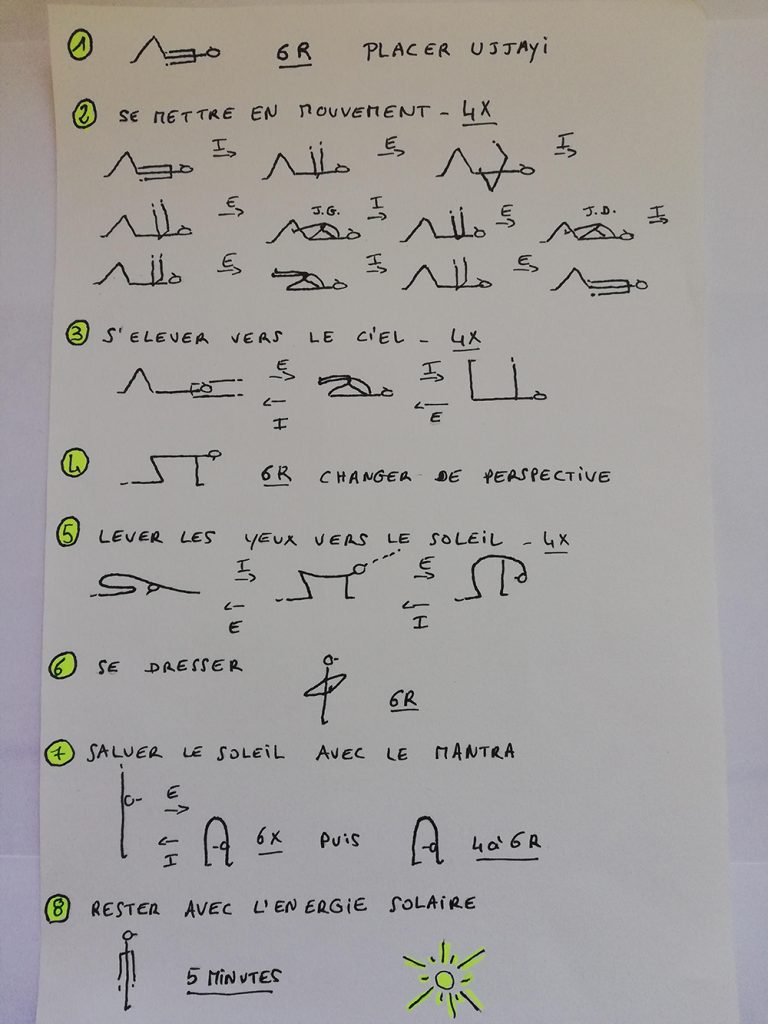 1 6R PLACER UJJAYi
2 SE METTRE EN MOUVEMENT - 4X
I E I
E J.G. I E J.D. I
E I E
3 S'ELEVER VERS LE CiEL - 4X
E I
I E
4 6R CHANGER DE PERSPECTiVE
5 LEVER LES YEUX VERS LE SOLEiL - 4X
I E
E I
6 SE DRESSER
6R
7 SALUER LE SOLEiL AVEC LE MANTRA
E
6X PUiS 4 à 6R
I
8 RESTER AVEC L'ENERGIE SOLAiRE
5 MiNUTES